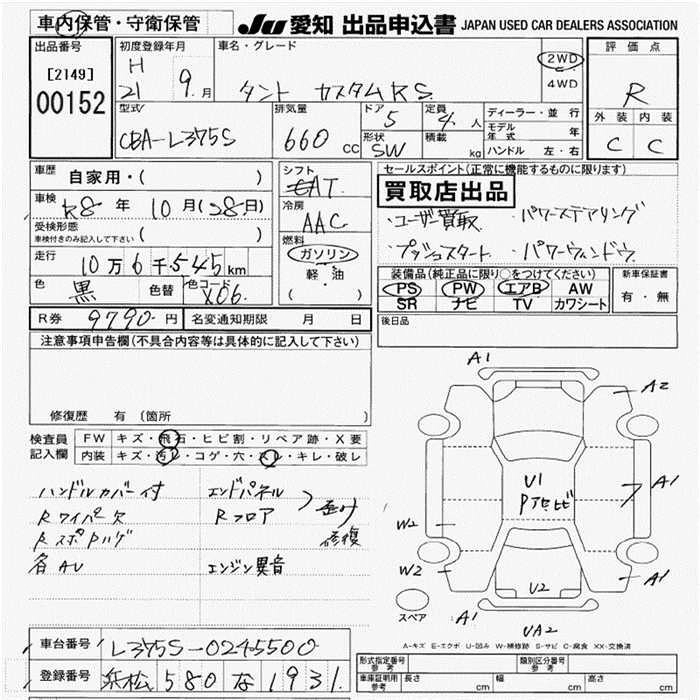 車内保管・守衛保管
JU 愛知 出品申込書 JAPAN USED CAR DEALERS ASSOCIATION
出品番号
[2149]
00152
初度登録年月
H
21 9 月
車名・グレード
タント カスタムRS
2WD
4WD
評価点
R
外装 内装
C C
型式
CBA-L375S
排気量
660 cc
ドア
5
形状
SW
定員
4 人
積載
kg
ディーラー・並行
モデル年式 年
ハンドル 左・右
車歴
自家用・( )
車検
R8 年 10 月(28日)
受検形態
車検付きのみ記入して下さい ( )
走行
10万6千545km
色
黒
色替
色コード
X06
シフト
AT
冷房
AAC
燃料
ガソリン
軽・油
( )
セールスポイント(正常に機能するものに限ります)
買取店出品
・ユーザー買取 ・パワーステアリング
・プッシュスタート ・パワーウィンドウ
装備品(純正品に限り○をつけてください)
PS PW エアB AW
SR ナビ TV カワシート
新車保証書
有・無
R券 9790円
名変通知期限 月 日
後日品
注意事項申告欄(不具合内容等は具体的に記入して下さい)
修復歴 有 (箇所
検査員記入欄
FW キズ・飛石・ヒビ割・リペア跡・X要
内装 キズ・汚レ・コゲ・穴・スレ・キレ・破レ
ハンドルカバー付 エンドパネル
Rワイパー欠 Rフロア 歪み
修復
各AU エンジン異音
A1
A2
U1
A1
W2
W2
A1
U2
スペア
A1
UA2
A-キズ E-エクボ U-凹み W-補修跡 S-サビ C-腐食 XX-交換済
車台番号 L375S-0245500
登録番号 浜松 580 な 1931
型式指定番号 参考
類別区分番号 参考
車庫証明用 参考 長さ cm 幅 cm 高さ cm